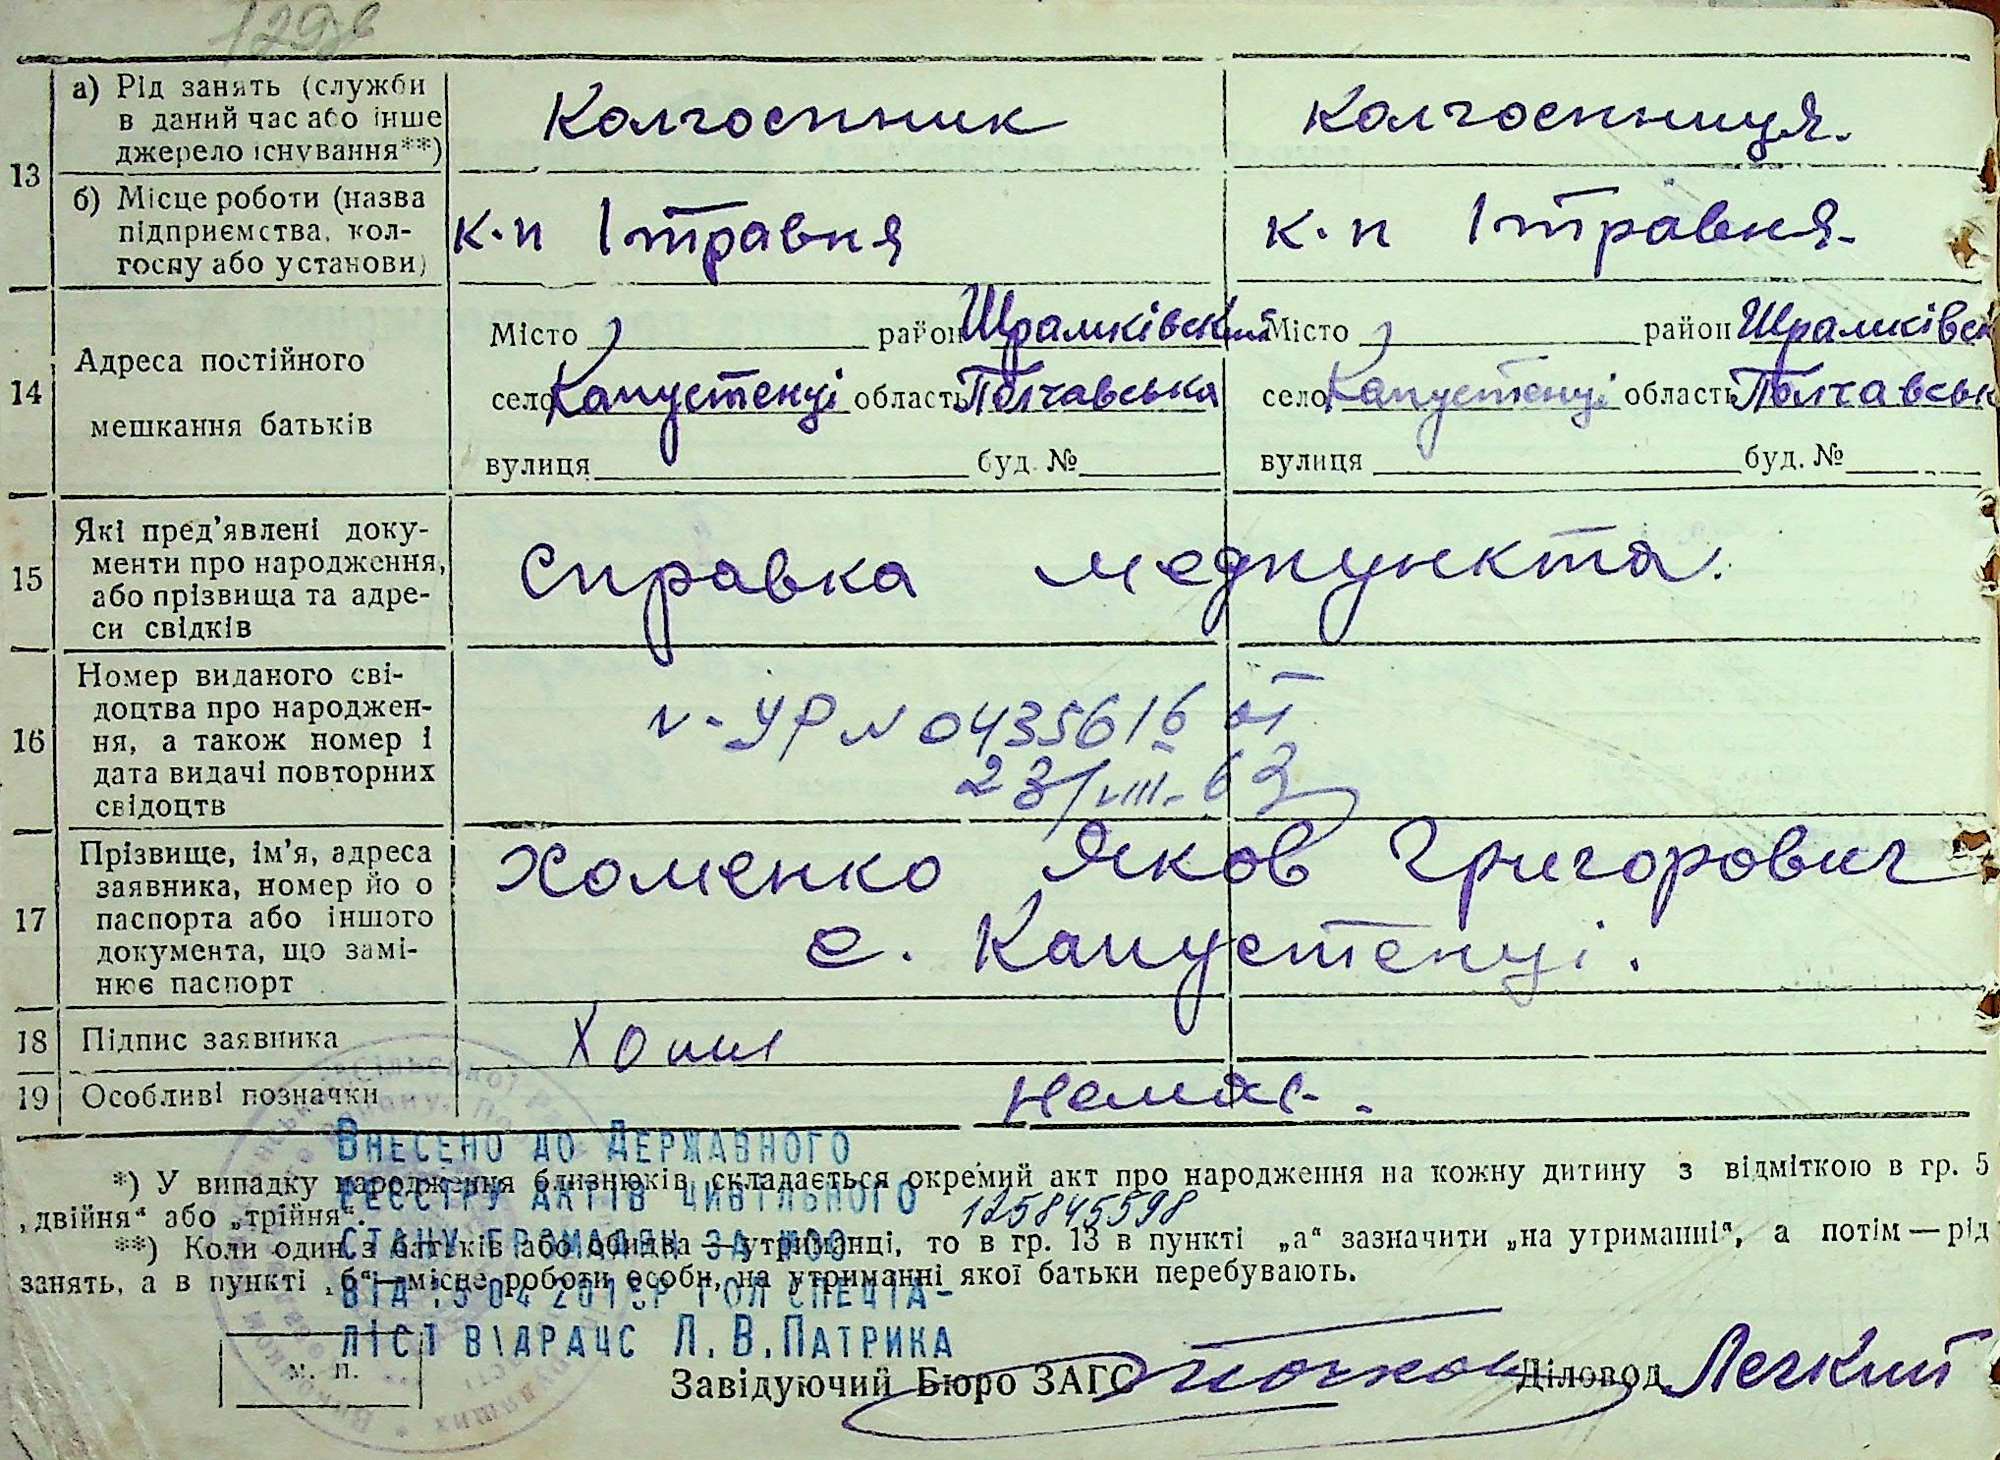 129зв
13
а) Рід занять (служби в даний час або інше джерело існування**)
Колгоспник
Колгоспниця.
б) Місце роботи (назва підприємства, колгоспу або установи)
к.п 1 травня
к.п 1 травня.
14
Адреса постійного мешкання батьків
Місто район Шрамківский
село Капустенці область Полтавська
вулиця буд. №
Місто район Шрамківск
село Капустенці область Полтавськ
вулиця буд. №
15
Які пред'явлені документи про народження, або прізвища та адреси свідків
Справка медпункта.
16
Номер виданого свідоцтва про народження, а також номер і дата видачі повторних свідоцтв
УР N 0435616 от
23/VIII-63
17
Прізвище, ім'я, адреса заявника, номер його паспорта або іншого документа, що замінює паспорт
Хоменко Яков Григорович
с. Капустенці.
18
Підпис заявника
Хоми
19
Особливі позначки
немає.
Внесено до Державного
реєстру актів цивільного
стану громадян за №00
125845598
від 15 04 2013р гол спеціа-
ліст ВІДРАЦС Л.В.Патрика
*) У випадку народження близнюків складається окремий акт про народження на кожну дитину з відміткою в гр. 5
„двійня" або „трійня".
**) Коли один з батьків або обидва — утриманці, то в гр. 13 в пункті „а" зазначити „на утриманні", а потім — рід
занять, а в пункті „б" — місце роботи особи, на утриманні якої батьки перебувають.
М. П.
Завідуючий Бюро ЗАГС
Діловод Легкий